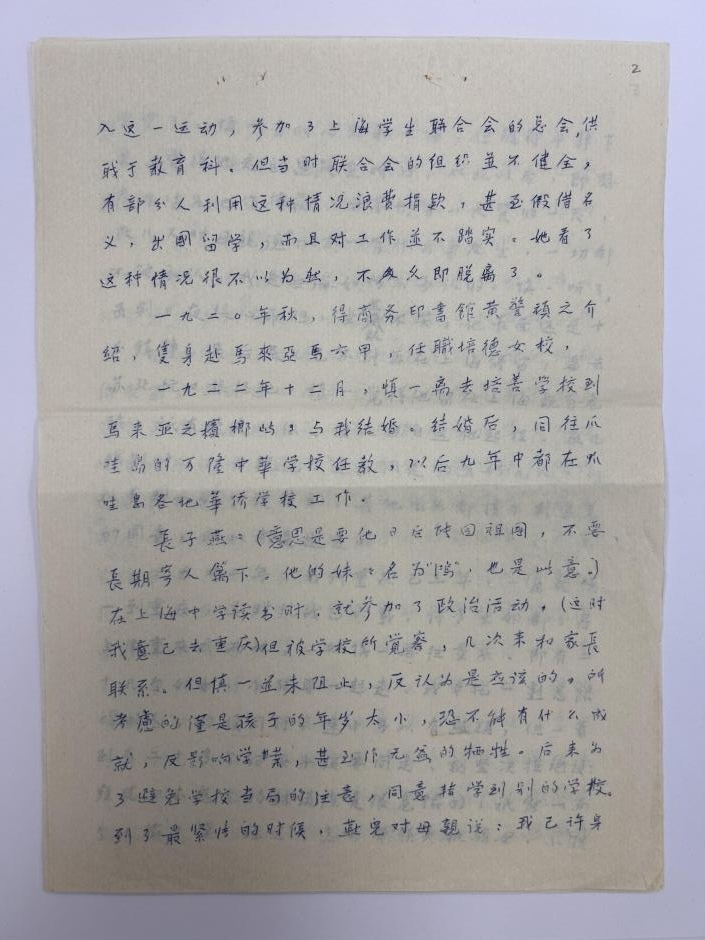 2
入这一运动，参加了上海学生联合会的总会，供
职于教育科．但当时联合会的组织並不健全，
有部分人利用这种情况浪费捐款，甚至假借名
义，出國留学，而且对工作並不踏实。她看了
这种情况很不以为然，不多久即脱离了。
一九二〇年秋，得商务印書館黄警頑之介
绍，隻身赴馬來亞馬六甲，任職培德女校．
一九二二年十二月，慎一离去培善学校到
馬来亚之檳榔屿，与我结婚．结婚后，同往爪
哇島的万隆中華学校任教，以后九年中都在爪
哇島各地華侨学校工作．
長子燕：(意思是要他日后能回祖国，不要
長期寄人篱下．他的妹：名为“鸿”也是此意．)
在上海中学读书时，就参加了政治活动．(这时
我竟已去重庆)但被学校所觉察，几次来和家長
联系．但慎一並未阻止，反认为是应该的．所
考慮的僅是孩子的年岁太小，恐不能有什么成
就，反影响学業，甚至作无益的牺牲。后来为
了避免学校当局的注意，同意转学到别的学校．
到了最紧悄的时候，燕兒对母親说：我已许身